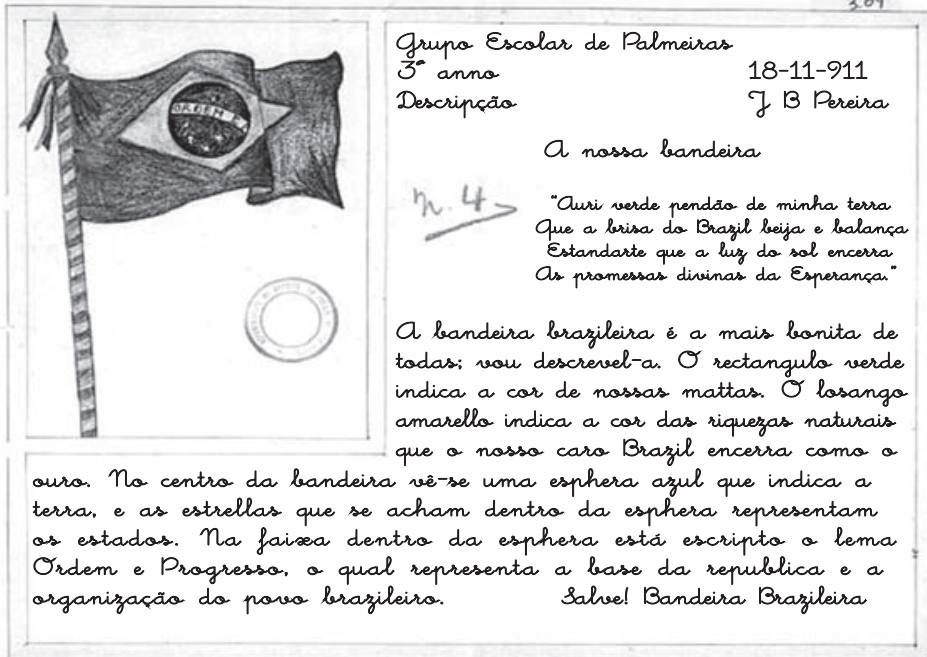 3.09
ORDEM E
Grupo Escolar de Palmeiras
3º anno
18-11-911
Descripção
J B Pereira
A nossa bandeira
n. 4
"Auri verde pendão de minha terra
Que a brisa do Brazil beija e balança
Estandarte que a luz do sol encerra
As promessas divinas da Esperança."
A bandeira brazileira é a mais bonita de
todas; vou descrevel-a. O rectangulo verde
indica a cor de nossas mattas. O losango
amarello indica a cor das riquezas naturais
que o nosso caro Brazil encerra como o
ouro. No centro da bandeira vê-se uma esphera azul que indica a
terra, e as estrellas que se acham dentro da esphera representam
os estados. Na faixa dentro da esphera está escripto o lema
Ordem e Progresso, o qual representa a base da republica e a
organização do povo brazileiro.
Salve! Bandeira Brazileira